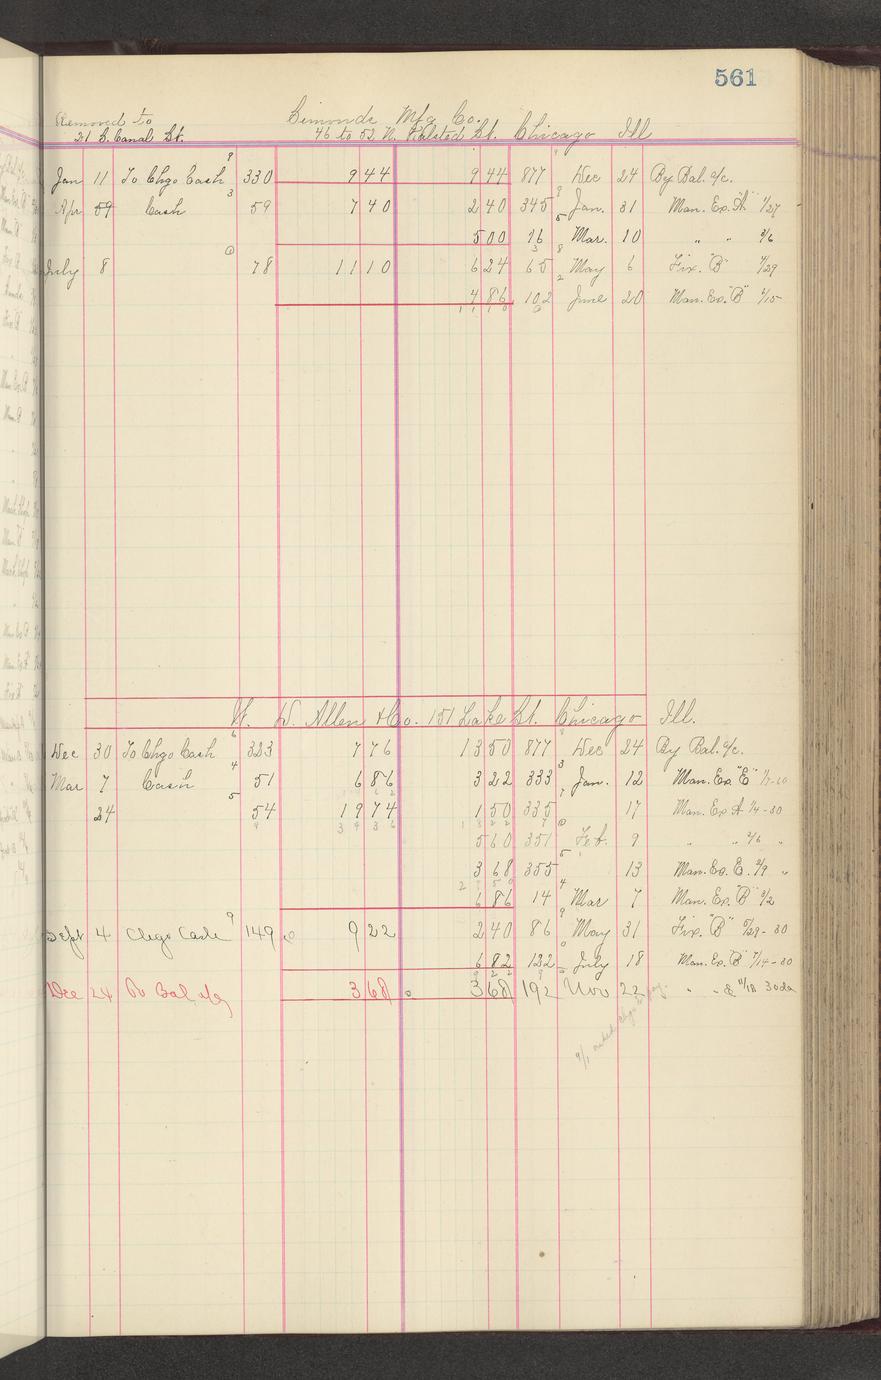 561
Removed to Simonds Mfg Co.
21 S. Canal St. 46 to 52 N. Halsted St. Chicago Ill
Jan 11 To Chgo Cash 8 330 9 44 9 44 877 Dec 24 By Bal. a/c.
Apr 59 Cash 3 59 7 40 2 40 345 Jan. 31 Man. Ex. "A" 1/27
5 00 16 Mar. 10 " " 3/6
July 8 78 11 10 6 24 65 May 6 Fix. "B" 4/29
4 86 102 June 20 Man. Ex. "B" 6/15
11 10
W. D. Allen & Co. 151 Lake St. Chicago Ill.
Dec 30 To Chgo Cash 6 323 7 76 13 50 877 Dec 24 By Bal. a/c.
Mar 7 Cash 4 51 6 86 3 22 333 Jan. 12 Man. Ex. "E"
24 5 54 19 74 1 50 335 17 Man. Ex A 1/4-30
34 36 13 22
5 60 351 Feb. 9 " " 2/6 "
3 68 355 13 Man. Ex. E. 2/9 "
6 86 14 Mar 7 Man. Ex. "B" 3/2
Sept 4 Chgo Cash 9 149 9 22 2 40 86 May 31 Fix. "B" 5/28-30
6 82 122 July 18 Man. Ex. "B" 7/14-30
9 22
Dec 24 To Bal 3 68 3 68 192 Nov 22 " " & 11/18 30da
9/1 asked Chgo to pay.